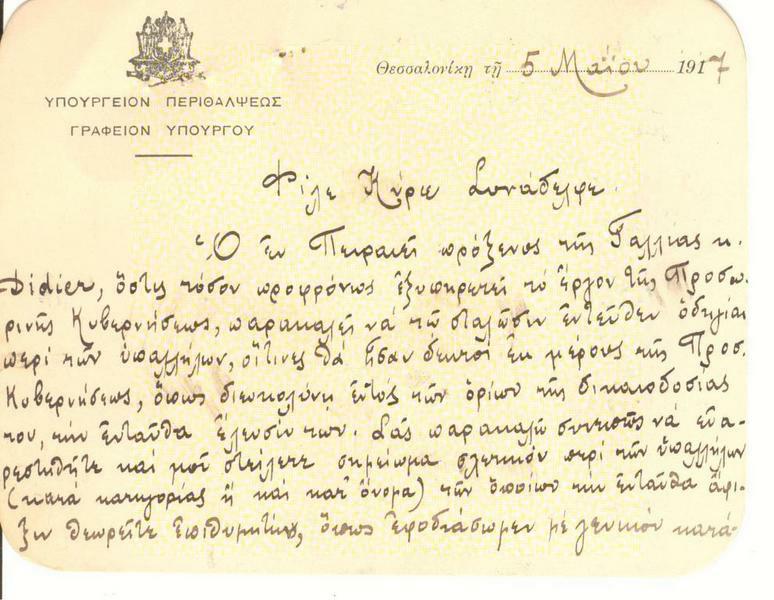 Θεσσαλονίκη τῇ 5 Μαΐου 1917
ΥΠΟΥΡΓΕΙΟΝ ΠΕΡΙΘΑΛΨΕΩΣ
ΓΡΑΦΕΙΟΝ ΥΠΟΥΡΓΟΥ
Φίλε Κύριε Συνάδελφε.
Ὁ ἐν Πειραιεῖ πρόξενος τῆς Γαλλίας κ.
Didier, ὅστις τόσον προφρόνως ἐξυπηρετεῖ τὸ ἔργον τῆς Προσω-
ρινῆς Κυβερνήσεως, παρακαλεῖ νὰ τῷ σταλῶσιν ἐντεῦθεν ὁδηγίαι
περὶ τῶν ὑπαλλήλων, οἵτινες θὰ ἦσαν δεκτοὶ ἐκ μέρους τῆς Προσ.
Κυβερνήσεως, ὅπως διευκολύνῃ ἐντὸς τῶν ὁρίων τῆς δικαιοδοσίας
του, τὴν ἐνταῦθα ἔλευσίν των. Σᾶς παρακαλῶ συνεπῶς νὰ εὐα-
ρεστηθῆτε καὶ μοῦ στείλετε σημείωμα σχετικὸν περὶ τῶν ὑπαλλήλων
(κατὰ κατηγορίας ἢ καὶ κατ' ὄνομα) τῶν ὁποίων τὴν ἐνταῦθα ἄφι-
ξιν θεωρεῖτε ἐπιθυμητήν, ὅπως ἐφοδιάσωμεν μὲ γενικὸν κατά-